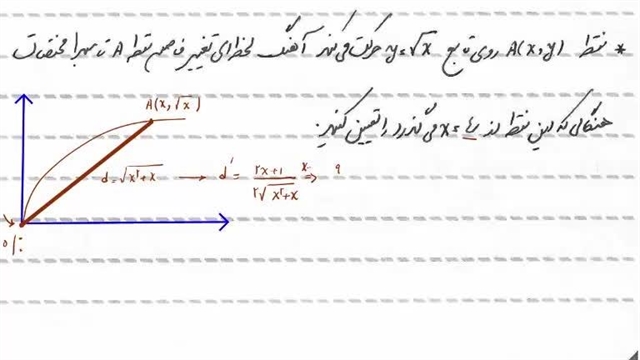 * نقطه A(x,y) روی تابع y=√x حرکت می‌کند. آهنگ لحظه‌ای تغییر فاصله نقطه A تا مبدا مختصات
هنگامی که این نقطه از x=۴ می‌گذرد را تعیین کنید.
A(x,√x)
d=√x²+x → d' = ۲x+۱ / ۲√x²+x x ⇒ ۹